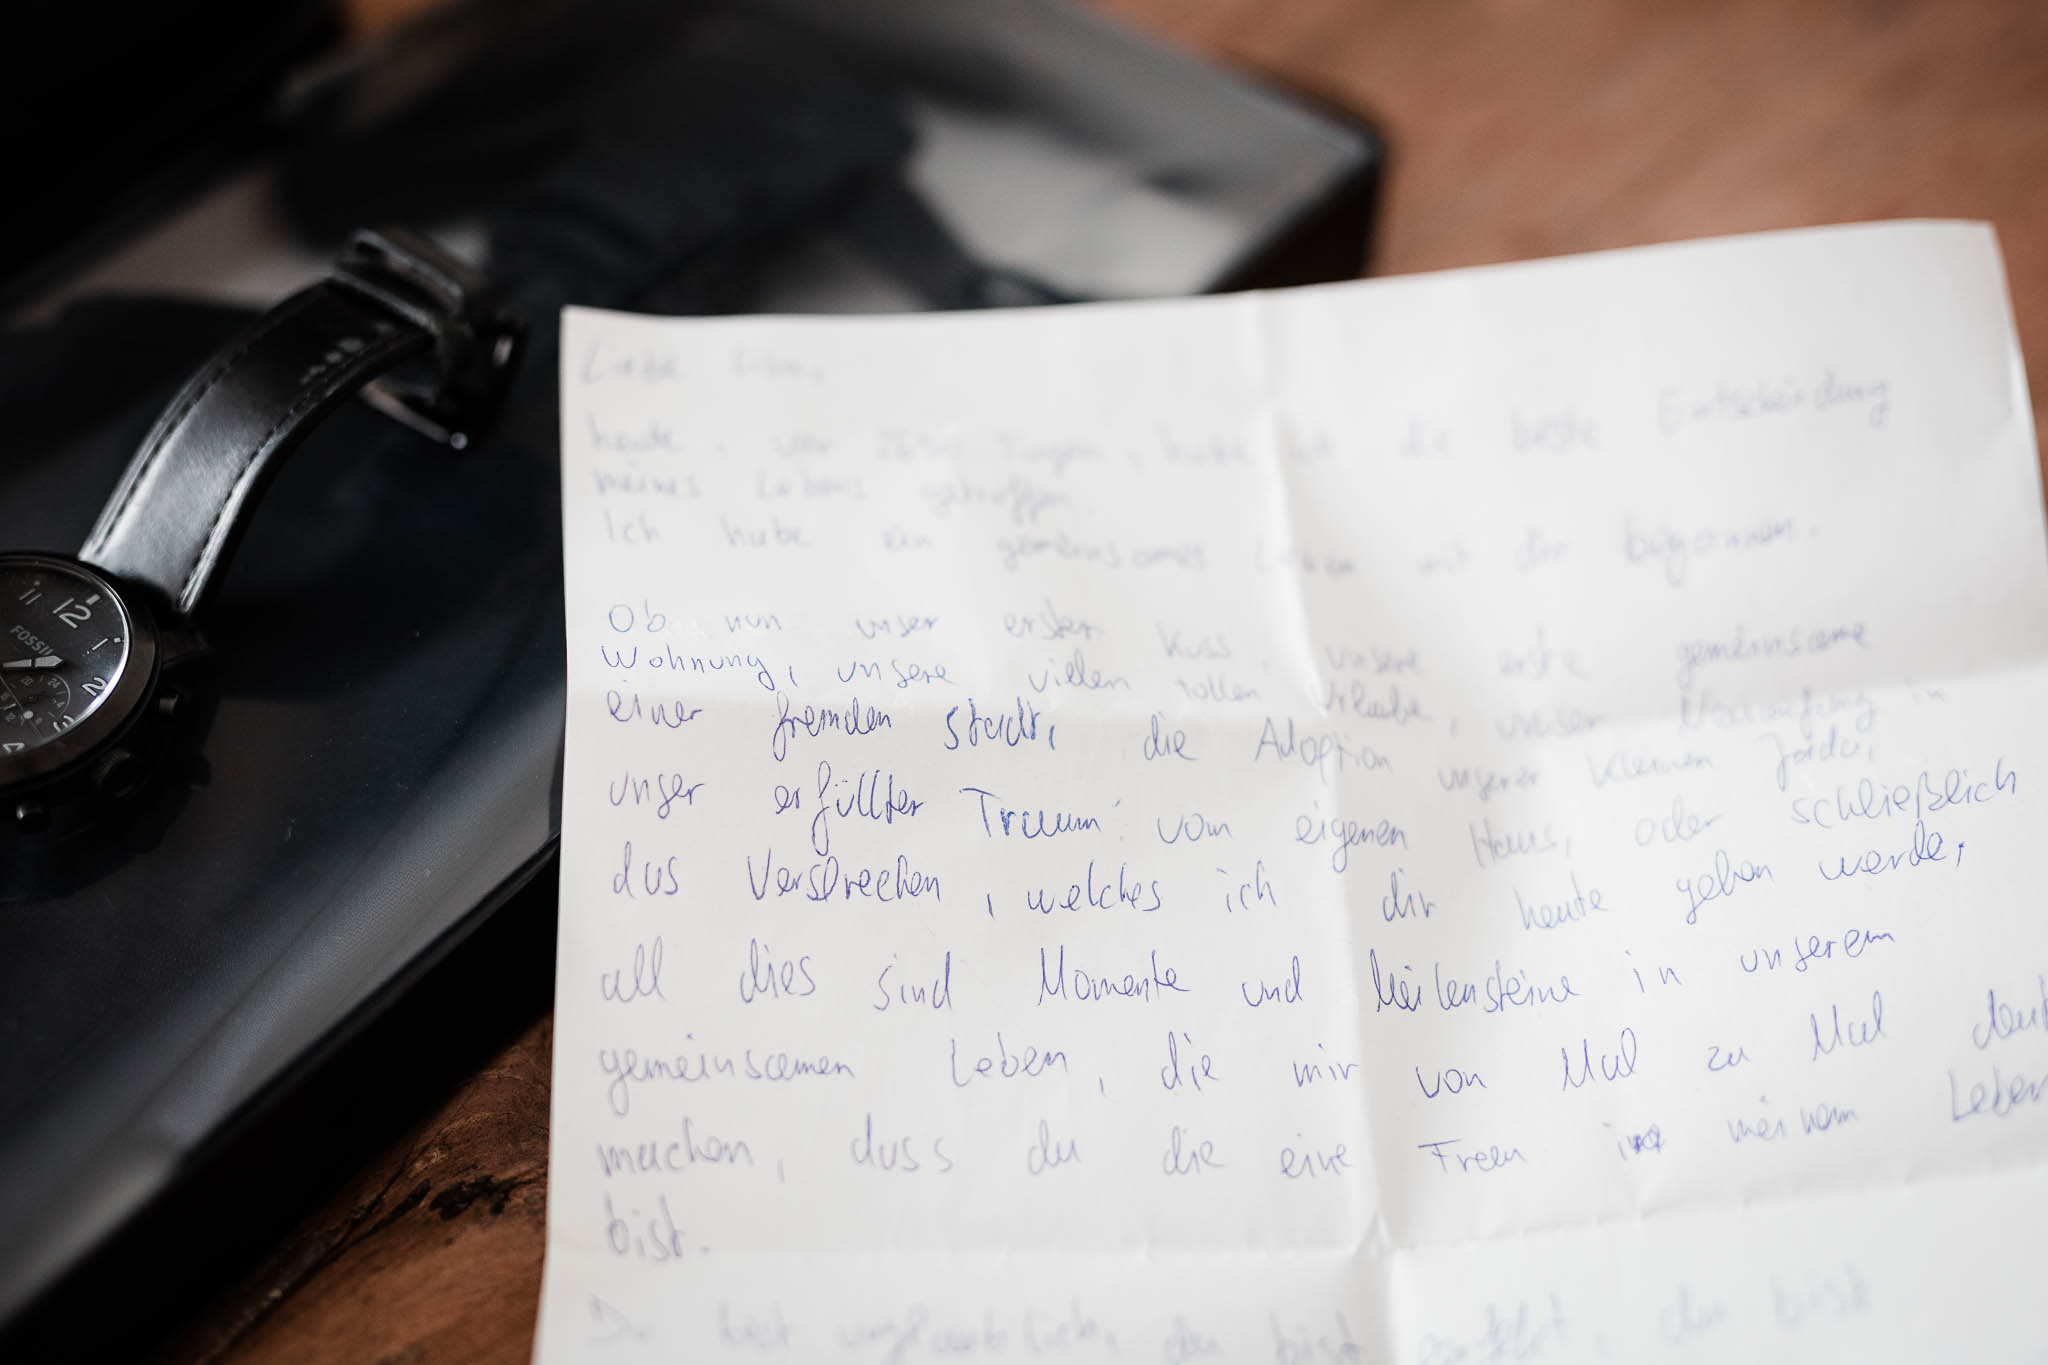 11
12
1
2
3
4
FOSSIL
24
Liebe
heute, vor Tagen, habe ich die beste Entscheidung
meines Lebens getroffen
Ich habe ein gemeinsames Leben mit dir begonnen.
Ob nun unser erster Kuss, unsere erste gemeinsame
Wohnung, unsere vielen tollen Urlaube, unser in
einer fremden Stadt, die Adoption unserer kleinen
unser erfüllter Traum vom eigenen Haus, oder schließlich
das Versprechen, welches ich dir heute geben werde,
all dies sind Momente und Meilensteine in unserem
gemeinsamen Leben, die mir von Mal zu Mal
machen, dass du die eine Frau in meinem Leben
bist.
Du bist unglaublich, du bist, du bist